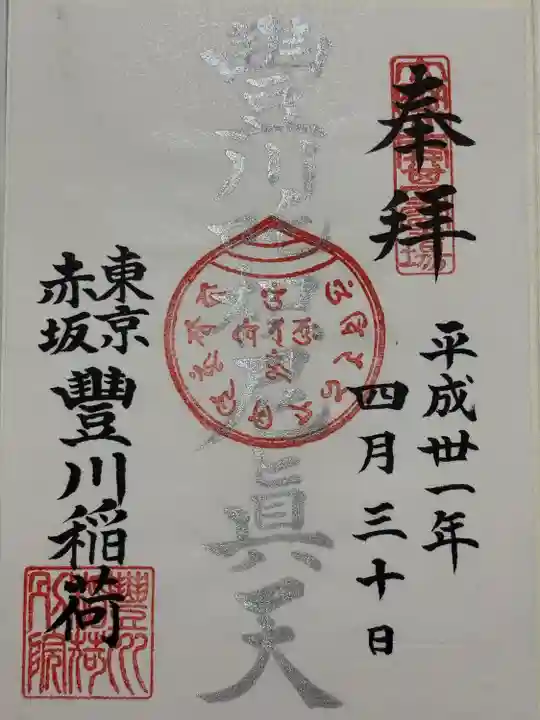 奉拜
平成卅一年
四月三十日
豐川吒枳尼眞天
東京
赤坂
豐川稲荷
豐川稲荷別院